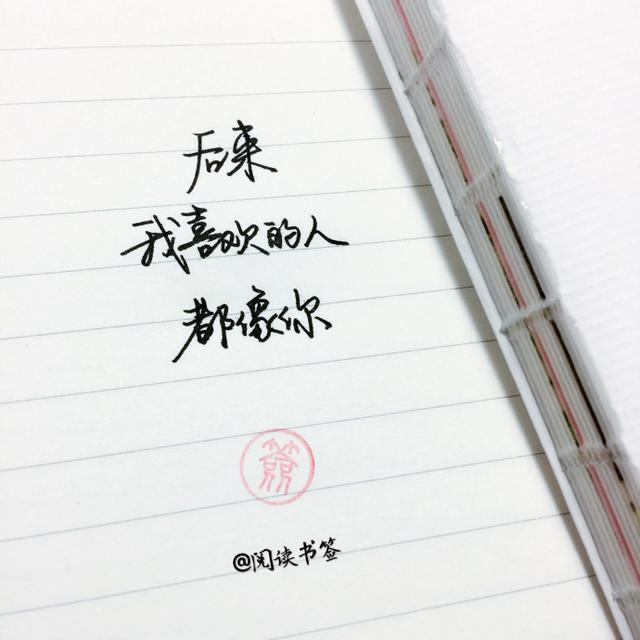 后来
我喜欢的人
都像你
@阅读书签